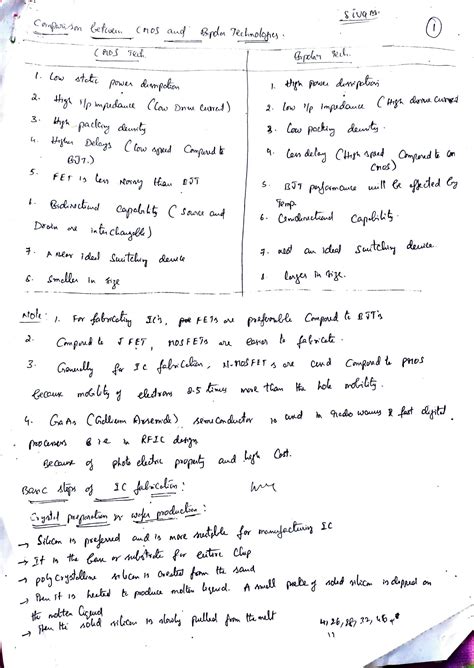 Sivam
1
Comparison between CMOS and Bipolar Technologies.
CMOS Tech.
Bipolar Tech.
1. Low static power dissipation
1. High power dissipation
2. High i/p impedance (Low Drive current)
2. Low i/p impedance (High drive current)
3. High packing density
3. Low packing density
4. Higher Delays (Low speed Compared to BJT.)
4. Less delay (High speed Compared to CMOS)
5. FET is Less Noisy than BJT
5. BJT performance will be affected by Temp.
6. Bidirectional Capability (Source and Drain are interchangeable)
6. Unidirectional Capability.
7. A Near ideal Switching device
7. not an ideal Switching device.
8. Smaller in Size
8. Larger in Size.
Note: 1. For fabricating IC's, FETs are preferable Compared to BJT's
2. Compared to JFET, MOSFETs are easier to fabricate.
3. Generally for IC fabrication, N-MOSFETs are used Compared to PMOS
Because mobility of electrons 2.5 times more than the hole mobility.
4. GaAs (Gallium Arsenide) semiconductor is used in & fast digital
processors in RFIC design
Because of photo electric property and high Cost.
Basic steps of IC fabrication:
Crystal preparation or wafer production:
→ Silicon is preferred and is more suitable for manufacturing IC
→ It is the base or substrate for entire Chip
→ poly crystalline silicon is created from the sand
→ then it is heated to produce molten liquid. A small piece of solid silicon is dipped on
the molten liquid
→ then the solid silicon is slowly pulled from the melt